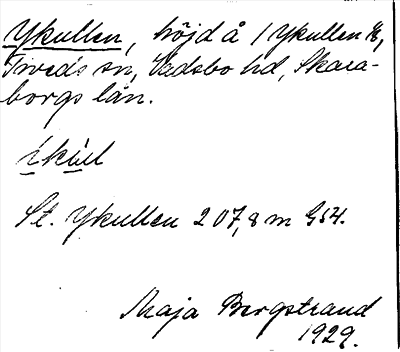 Ykullen, höjd å 1 Ykullen 1/8,
Tiveds sn, Vadsbo hd, Skara-
borgs län.
íkùl
St. Ykullen 207,8 m G54.
Maja Bergstrand
1929.